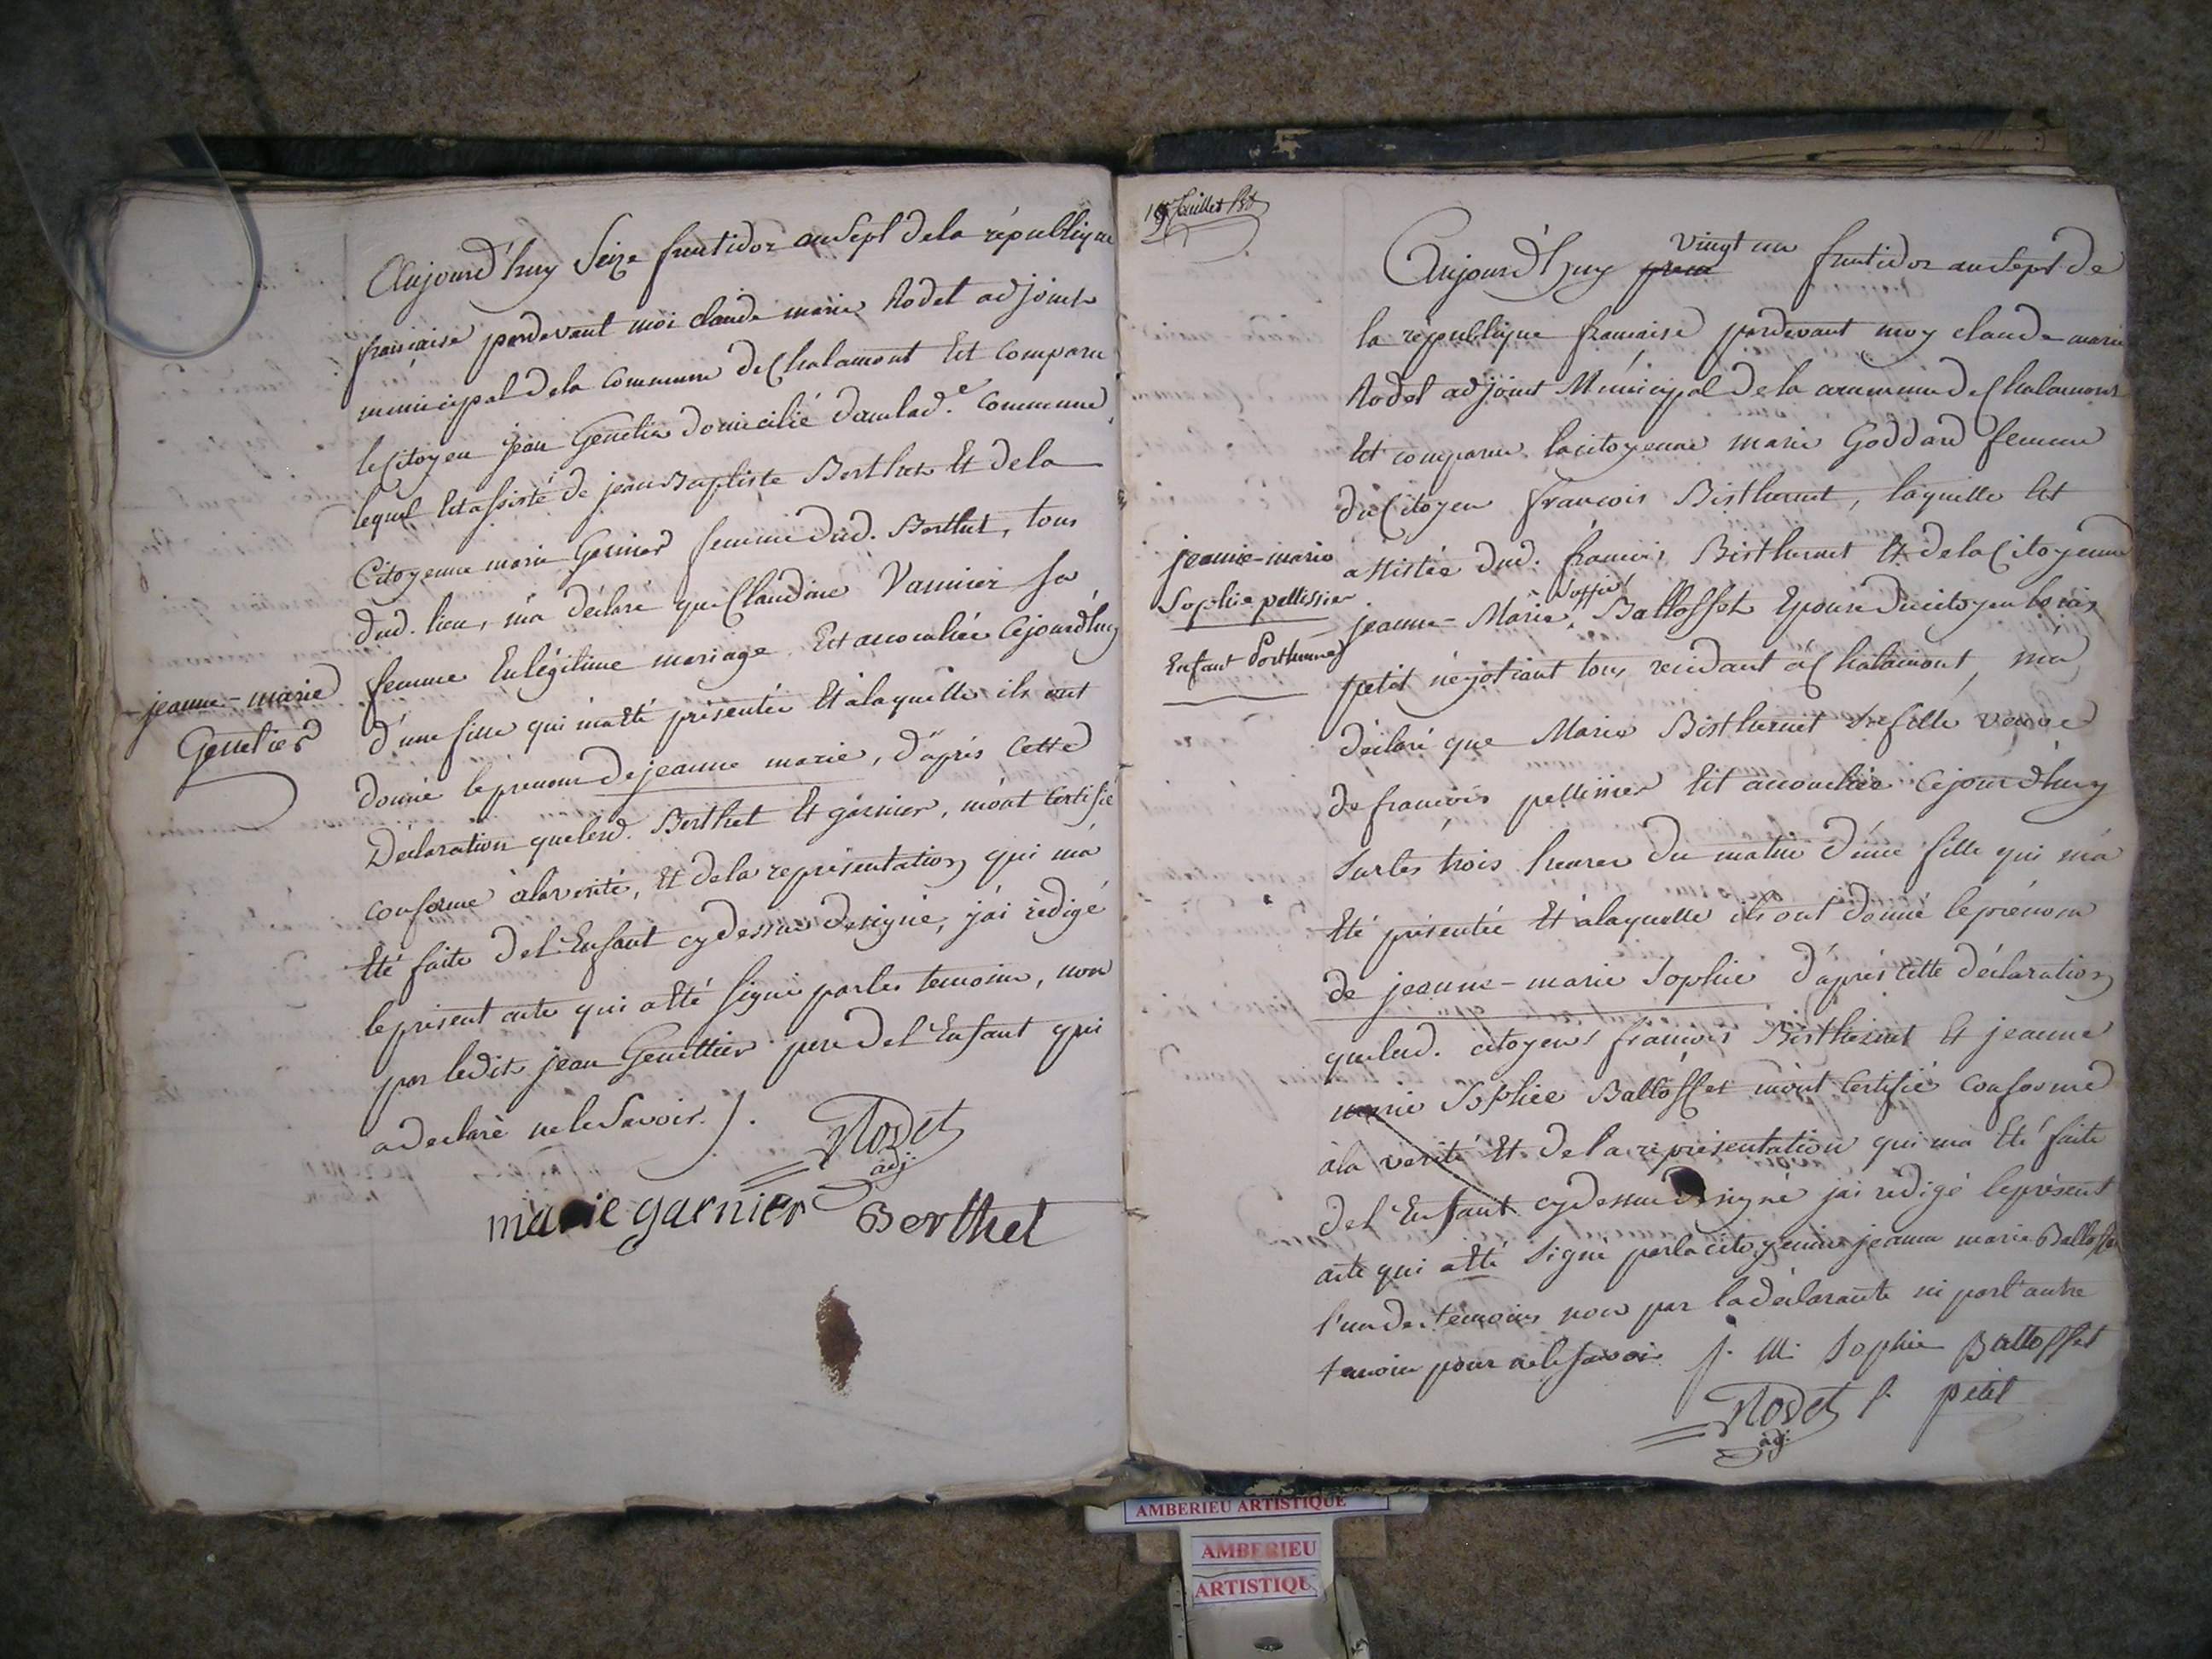 Aujourd'huy Seize fructidor an Sept de la république
française pardevant moi claude marie Rodet adjoint
municipal de la commune de Chalamont Est comparu
le Citoyen jean Genetier domicilié dans lad.e commune
lequel Est assisté de jean Baptiste Berthet Et de la
Citoyenne marie Garnier femme dud. Berthet, tous
dud. lieu, m'a déclaré que Claudine Vannier sa
femme En légitime mariage Est accouchée Cejourd'huy
d'une fille qui m'a été présentée Et à laquelle ils ont
donné le prenom de jeanne marie, d'après Cette
Déclaration que lesd. Berthet Et garnier, m'ont Certifié
conforme à la vérité, Et de la représentation qui m'a
Eté faite de l'Enfant cy dessus désigné, j'ai rédigé
le présent acte qui a Eté signé par les temoins, non
par ledit jean Genettier pere de l'Enfant qui
a declaré ne le Savoir ./.
Rodet
adj:
marie garnier Berthet
jeanne-marie
Genetier
feuillet
Aujourd'huy vingt un fructidor an Sept de
la république française pardevant moy claude marie
Rodet adjoint Municipal de la commune de Chalamont
Est comparue la citoyenne marie Goddard femme
du Citoyen françois Bisthernet, laquelle Est
assistée dud. françois Bisthernet Et de la Citoyenne
jeanne-Marie Soffie Balloffet Epouse du citoyen louis
petit négotiant tous residant à Chalamont, m'a
déclaré que Marie Bisthernet Sa fille veuve
de françois pellissier Est accouchée Cejourd'huy
Sur les trois heures du matin d'une fille qui m'a
Eté présentée Et à laquelle ils ont donné le prénom
de jeanne-marie Sophie d'après Cette déclaration
que lesd. citoyens françois Bisthernet Et jeanne
marie Sophie Balloffet m'ont Certifié Conforme
à la vérité Et de la représentation qui m'a Eté faite
de l'Enfant cy dessus designé j'ai rédigé le présent
acte qui a Eté Signé par la citoyenne jeanne marie Balloffet
l'un des temoins non par la déclarante ni par l'autre
temoin pour ne le Savoir J. M. Sophie Balloffet
Rodet f. petit
adj:
jeanne-marie
Sophie pellissier
Enfant Posthume
AMBERIEU ARTISTIQUE
AMBERIEU
ARTISTIQU